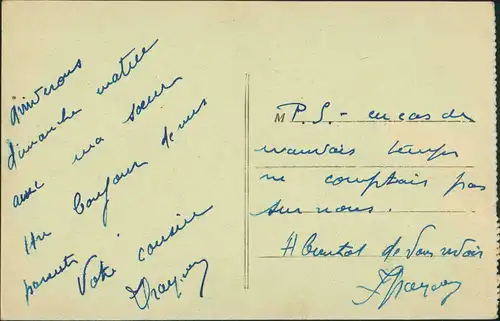 arriverons
dimanche matin
avec ma soeur
Un bonjour de mes
parents
Votre cousine
M P.S. - en cas de
mauvais temps
ne comptais pas
sur nous.
A bientot de vous voir